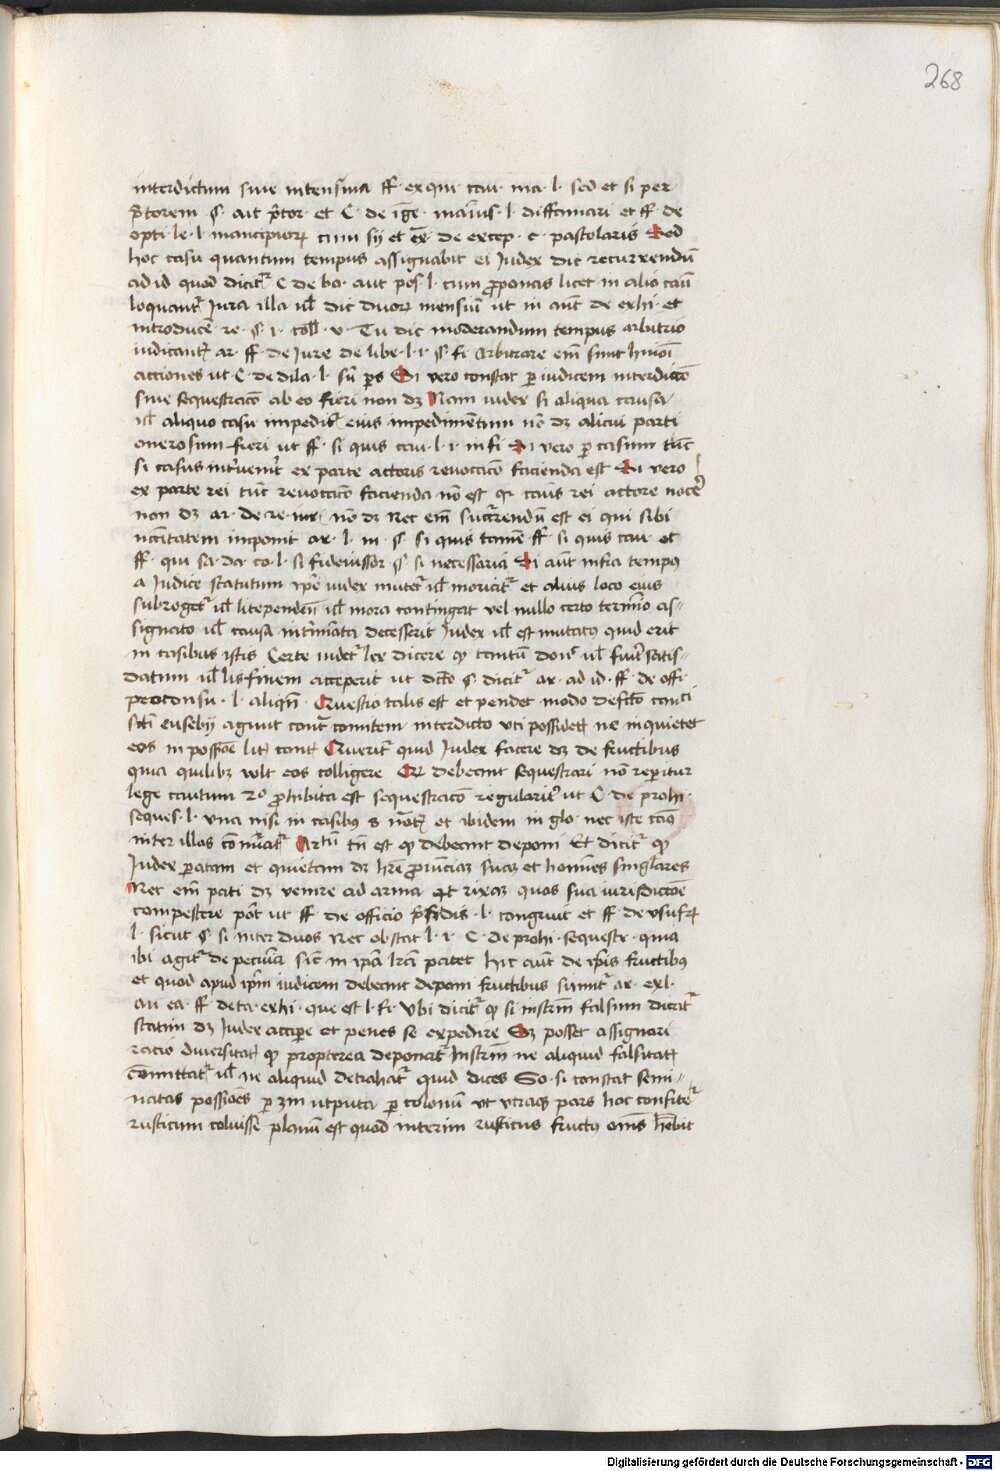 268
interdictum siue intensiua ff ex qui cau ma l sed et si per
p̄torem § ait p̄tor et C de iñge maiuis l diffamari et ff de
opti le l mancipiorꝝ cum sij et ex̄ de excep c pastoralis Sed
hoc casu quantum tempus assignabit ei Iudex dic recurrendū
ad id quod dicit̄ C de bo aut pos l cum ꝓponas licet in alio cāu
loquant̄ Iura illa ul̄ dic duorꝝ mensiū ut in aut̄ de exhi et
introducē re § i coll v Tu dic moderandum tempus arbitrio
iudicantꝭ ar ff de Iure de libe l i § fi Arbitrare em̄ sunt hm̄oi
acciones ut C de dila l sū ps Si vero constat ꝑ iudicem interdictō
siue sequestracō ab eo fieri non dꝫ Nam iudex si aliqua causa
ul̄ aliquo casu impedit̄ eius impedimentum nō dꝫ alicui parti
onerosum fieri ut ff si quis cau l i in fi Si vero ꝑ casum tūc
si casus int̄uenit̄ ex parte actoris reuocacō facienda est Si vero
ex parte rei tūc reuocacō facienda nō est qꝛ cāus rei actore nocēr
non dꝫ ar de re iur nō dꝫ Nec em̄ sucurrendū est ei qui sibi
nc̄itatem imponit ar l in § si quis tamē ff si quis cau et
ff qui sa da co l si fideiussor § si necessaria Si aūt infra tempus
a Iudice statutum ip̄e iudex mutet̄ ul̄ moriat̄ et alius loco eius
subroget̄ ul̄ litependen̄ ul̄ mora contingat vel nullo certo termīo as-
signato ul̄ causa int̄minata decesserit Iudex ul̄ est mutatus quid erit
in casibus istis Certe uidet̄ lex dicere qꝫ tantū don̄ ul̄ fuīt satis-
datum ul̄ lis finem acceperit ut dc̄o § dicit̄ ar ad id ff de offi
proconsu l aliqn̄ Questio talis est et pendet modo defctō cauci
Sc̄i eusebij agunt cont̄ comitem interdicto vti possidetꝭ ne inquietet
eos in possōe litꝭ contꝭ Querit̄ quid Iudex facere dꝫ de fructibus
quia quilibꝫ vult eos colligere Et debeant sequestrari nō reꝑitur
lege cautum 2o ꝓhibita est sequestracō regularit̄ ut C de prohi
seques l vna nisi in casibus s notꝭ et ibidem in glo nec iste cāus
inter illos con̄uat̄ tn̄ est qꝫ debeant deponi Et dicit̄ qꝫ
Iudex ꝑatam et quietam dꝫ hr̄e ꝓuinciaꝫ suaꝫ et homines singlares
Nec em̄ pati dꝫ venire ad arma et rixaꝫ quas sua iurisdiccōe
compescere pōt ut ff de officio p̄sidis l congruit et ff de vsufrꝭ
l sicut § si inter duos Nec obstat l i C de prohi sequestr quia
ibi agit̄ de pecunia sic in ip̄a lr̄a patet hic aūt de ip̄is fructibus
et quod apud ip̄m iudicem debeant deponi fructibus sumit̄ ar ex l
an ea ff de ta exhi que est l fi Vbi dicit̄ qꝫ si instrm̄ falsum dicat̄
statim dꝫ Iudex accipe et penes se expedire Sꝫ posset assignari
racio diuersitatꝭ qꝫ propterea deponat̄ Instrm̄ ne aliquid falsitatꝭ
cōmittat̄ ul̄ ne aliquid detrahat̄ quid dices So si constat semi-
natas possiōes ꝑ 3m utputa ꝑ colonū ut vtraqꝫ pars hoc confitet̄
rusticum coluisse planū est quod interim rusticus fructus oms hēbit
Digitalisierung gefördert durch die Deutsche Forschungsgemeinschaft - DFG